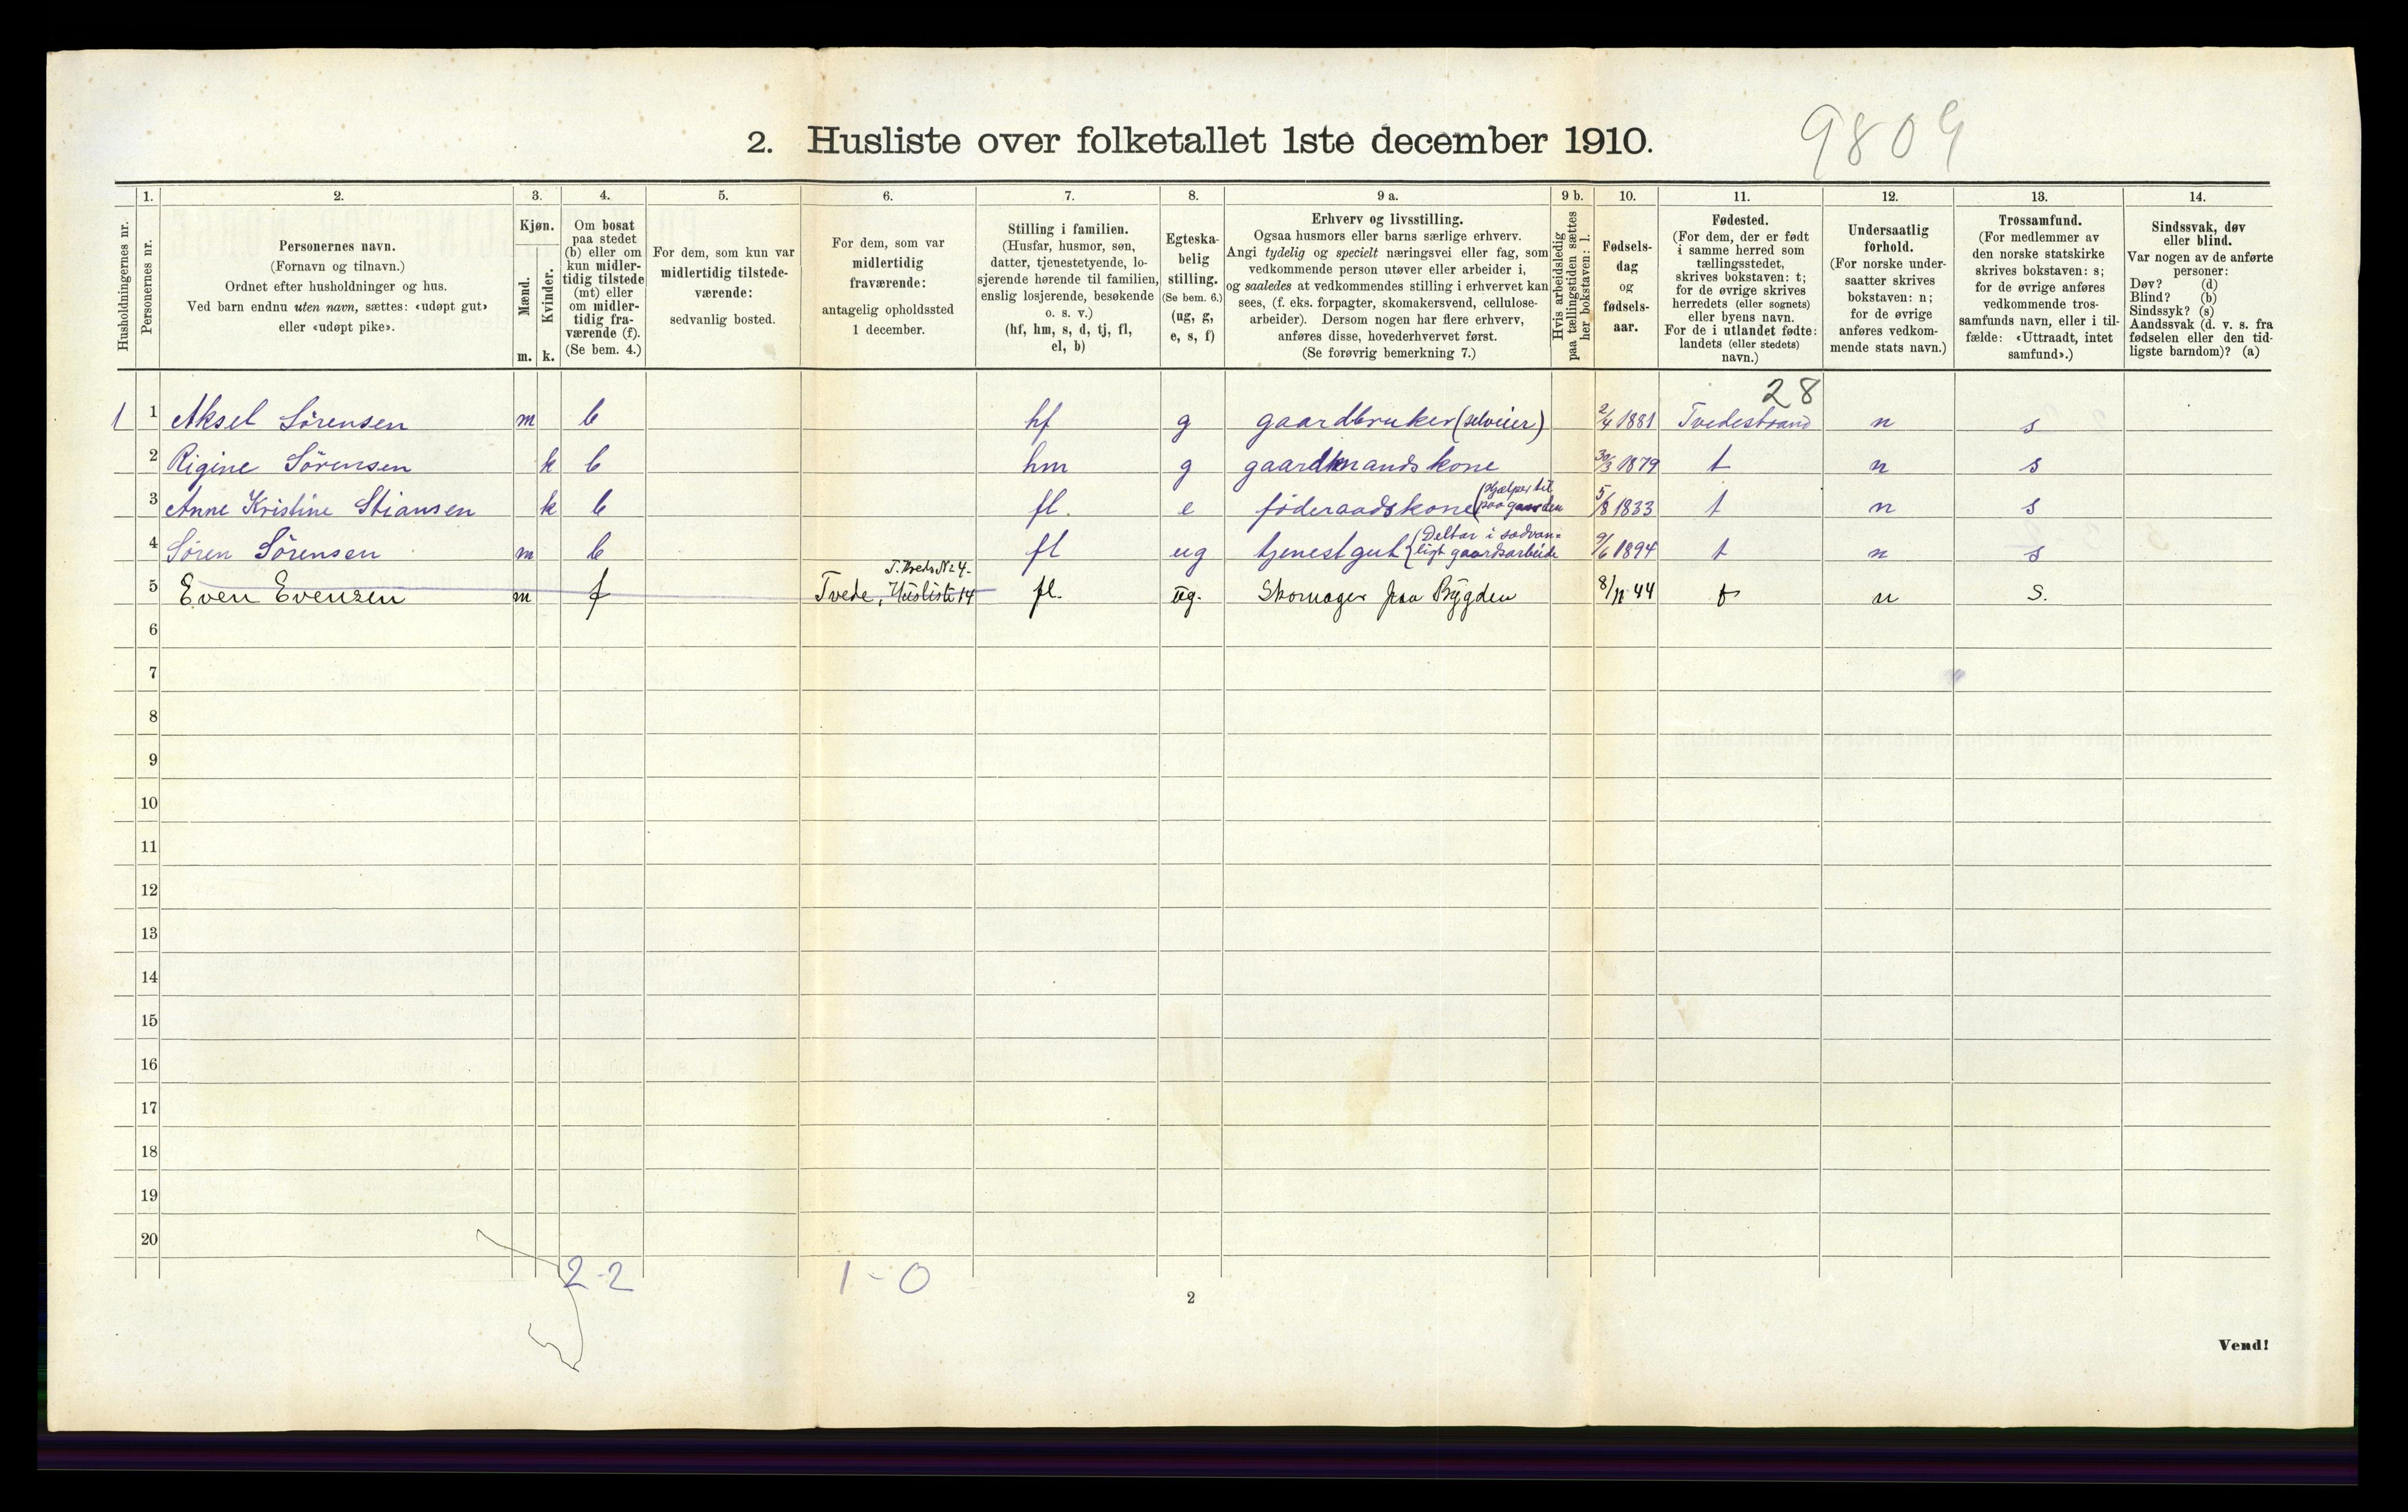 9809
2. Husliste over folketallet 1ste december 1910.
Husholdningernes nr.
1.
Personernes nr.
2.
Personernes navn.
(Fornavn og tilnavn.)
Ordnet efter husholdninger og hus.
Ved barn endnu uten navn, sættes: «udøpt gut»
eller «udøpt pike».
3.
Kjøn.
Mænd.
Kvinder.
m. k.
4.
Om bosat
paa stedet
(b) eller om
kun midler-
tidig tilstede
(mt) eller
om midler-
tidig fra-
værende (f).
(Se bem. 4.)
5.
For dem, som kun var
midlertidig tilstede-
værende:
sedvanlig bosted.
6.
For dem, som var
midlertidig
fraværende:
antagelig opholdssted
1 december.
7.
Stilling i familien.
(Husfar, husmor, søn,
datter, tjenestetyende, lo-
sjerende hørende til familien,
enslig losjerende, besøkende
o. s. v.)
(hf, hm, s, d, tj, fl,
el, b)
8.
Egteska-
belig
stilling.
(Se bem. 6.)
(ug, g,
e, s, f)
9 a.
Erhverv og livsstilling.
Ogsaa husmors eller barns særlige erhverv.
Angi tydelig og specielt næringsvei eller fag, som
vedkommende person utøver eller arbeider i,
og saaledes at vedkommendes stilling i erhvervet kan
sees, (f. eks. forpagter, skomakersvend, cellulose-
arbeider). Dersom nogen har flere erhverv,
anføres disse, hovederhvervet først.
(Se forøvrig bemerkning 7.)
9 b.
Hvis arbeidsledig
paa tællingstiden sættes
her bokstaven: l.
10.
Fødsels-
dag
og
fødsels-
aar.
11.
Fødested.
(For dem, der er født
i samme herred som
tællingsstedet,
skrives bokstaven: t;
for de øvrige skrives
herredets (eller sognets)
eller byens navn.
For de i utlandet fødte:
landets (eller stedets)
navn.)
12.
Undersaatlig
forhold.
(For norske under-
saatter skrives
bokstaven: n;
for de øvrige
anføres vedkom-
mende stats navn.)
13.
Trossamfund.
(For medlemmer av
den norske statskirke
skrives bokstaven: s;
for de øvrige anføres
vedkommende tros-
samfunds navn, eller i til-
fælde: «Uttraadt, intet
samfund».)
14.
Sindssvak, døv
eller blind.
Var nogen av de anførte
personer:
Døv? (d)
Blind? (b)
Sindssyk? (s)
Aandssvak (d. v. s. fra
fødselen eller den tid-
ligste barndom)? (a)
28
1 1 Aksel Sörensen m b hf g gaardbruker (selveier) 2/4 1881 Tvedestrand n s
2 Rigine Sörensen k b hm g gaardmandskone 30/3 1879 t n s
3 Anne Kristine Stiansen k b fl. e föderaadskone (Hjælper til paa gaarden 5/8 1833 t n s
4 Sören Sörensen m b fl ug tjenestgut (Deltar i sædvan= ligt gaardsarbeide 9/6 1894 t n s
T. Kreds No 4.
5 Even Evensen m f Tvede, Husliste 14 fl. ug. Skomager paa Bygden 8/11 44 t n s.
6
7
8
9
10
11
12
13
14
15
16
17
18
19
20
2-2 1-0
2
Vend!